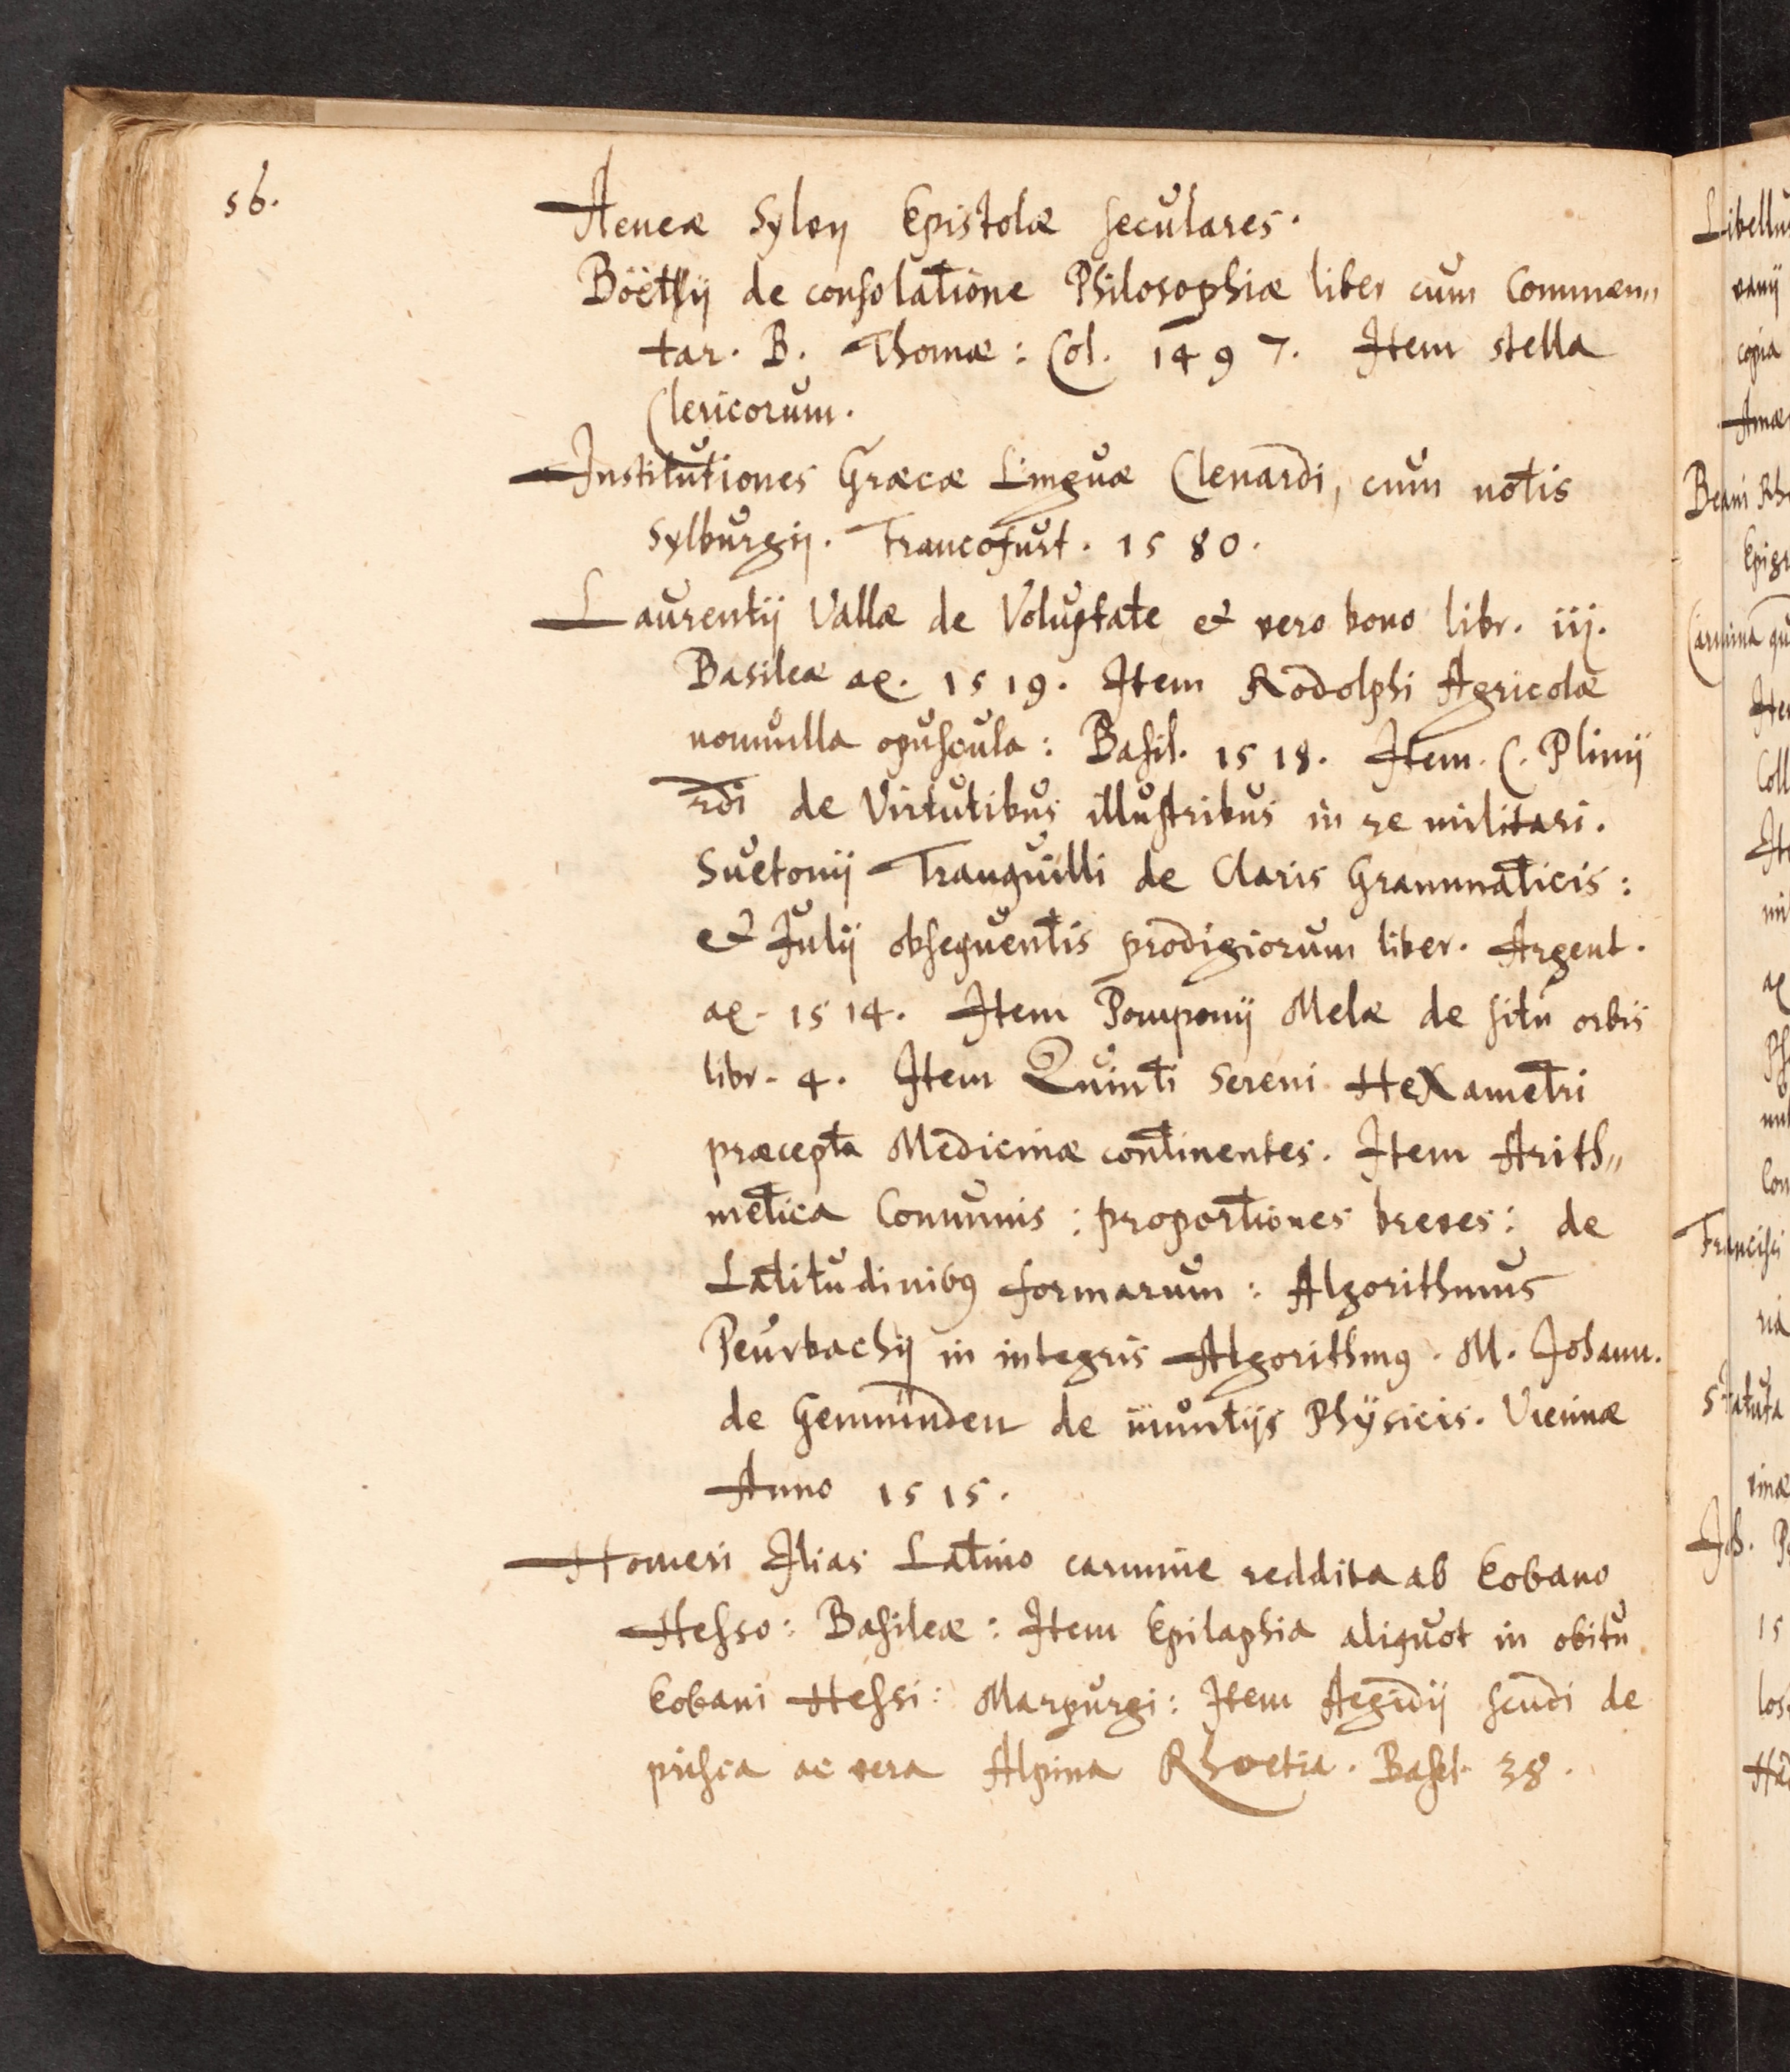 56.
Aeneæ Sylvij Epistolæ seculares.
Böethij de consolatione Philosophiæ liber cum Commen„
tar. B. Thomæ: Col. 1497. Item stella
Clericorum.
Institutiones Græcæ Linguæ Clenardi, cum notis
Sylburgij. Francofurt. 1580.
Laurentij Vallæ de Voluptate et vero bono libr. iij.
Basileæ aȩ. 1519. Item Rodolphi Agricolæ
nonnulla opuscula: Basil. 1518. Item. C. Plinij
de Virtutibus illustribus in re militari.
Suetonij Tranquilli de Claris Grammaticis:
et Julij obsequentis prodigiorum liber. Argent.
aȩ. 1514. Item Pomponij Melæ de situ orbis
libr. 4. Item Quinti Sereni Hexametri
præcepta Medicinæ continentes. Item Arith„
metica Communis: proportiones breves: de
Latitudinibꝰ formarum: Algorithmus
Peurbachij in integris Algorithmꝰ. M. Johann.
de Gemünden de minutijs Physicis. Viennæ
Anno 1515.
Homeri Ilias Latino carmine reddita ab Eobano
Hesso: Basileæ: Item Epitaphia aliquot in obitu
Eobani Hessi: Marpurgi: Item Aegidij Scudi de
prisca ac vera Alpina Rhoetia. Basel. 38.
Libellus
varij
copia
Beani
Carmina
Item
Francisci
Statuta
Joh.
15